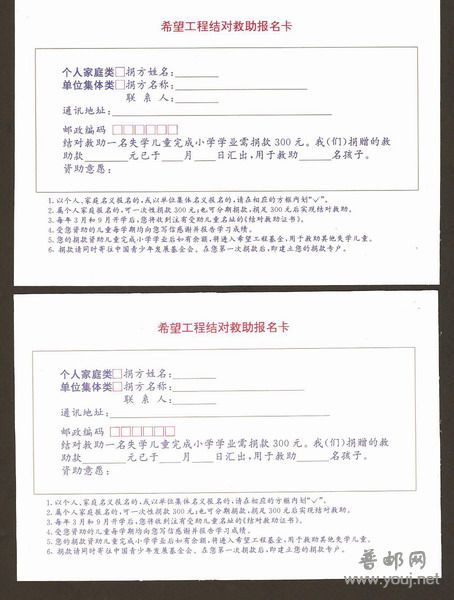 希望工程结对救助报名卡
个人家庭类□捐方姓名:
单位集体类□捐方名称:
联 系 人:
通讯地址:
邮政编码 □□□□□□
结对救助一名失学儿童完成小学学业需捐款300元。我(们)捐赠的救
助款____元已于___月___日汇出,用于救助____名孩子。
资助意愿:
1.以个人、家庭名义报名的,或以单位集体名义报名的,请在相应的方框内划“√”。
2.属个人家庭报名的,可一次性捐款300元;也可分期捐款,捐足300元后实现结对救助。
3.每年3月和9月开学后,您将收到注有受助儿童名址的《结对救助证书》。
4.受您资助的儿童每学期均向您写信感谢并报告学习成绩。
5.您的捐款资助儿童完成小学学业后如有余额,将进入希望工程基金,用于救助其他失学儿童。
6.捐款请同时寄往中国青少年发展基金会。在您第一次捐款后,即建立您的捐款专户。
希望工程结对救助报名卡
个人家庭类□捐方姓名:
单位集体类□捐方名称:
联 系 人:
通讯地址:
邮政编码 □□□□□□
结对救助一名失学儿童完成小学学业需捐款300元。我(们)捐赠的救
助款____元已于___月___日汇出,用于救助____名孩子。
资助意愿:
1.以个人、家庭名义报名的,或以单位集体名义报名的,请在相应的方框内划“√”。
2.属个人家庭报名的,可一次性捐款300元;也可分期捐款,捐足300元后实现结对救助。
3.每年3月和9月开学后,您将收到注有受助儿童名址的《结对救助证书》。
4.受您资助的儿童每学期均向您写信感谢并报告学习成绩。
5.您的捐款资助儿童完成小学学业后如有余额,将进入希望工程基金,用于救助其他失学儿童。
6.捐款请同时寄往中国青少年发展基金会。在您第一次捐款后,即建立您的捐款专户。
普邮网
www.youj.net